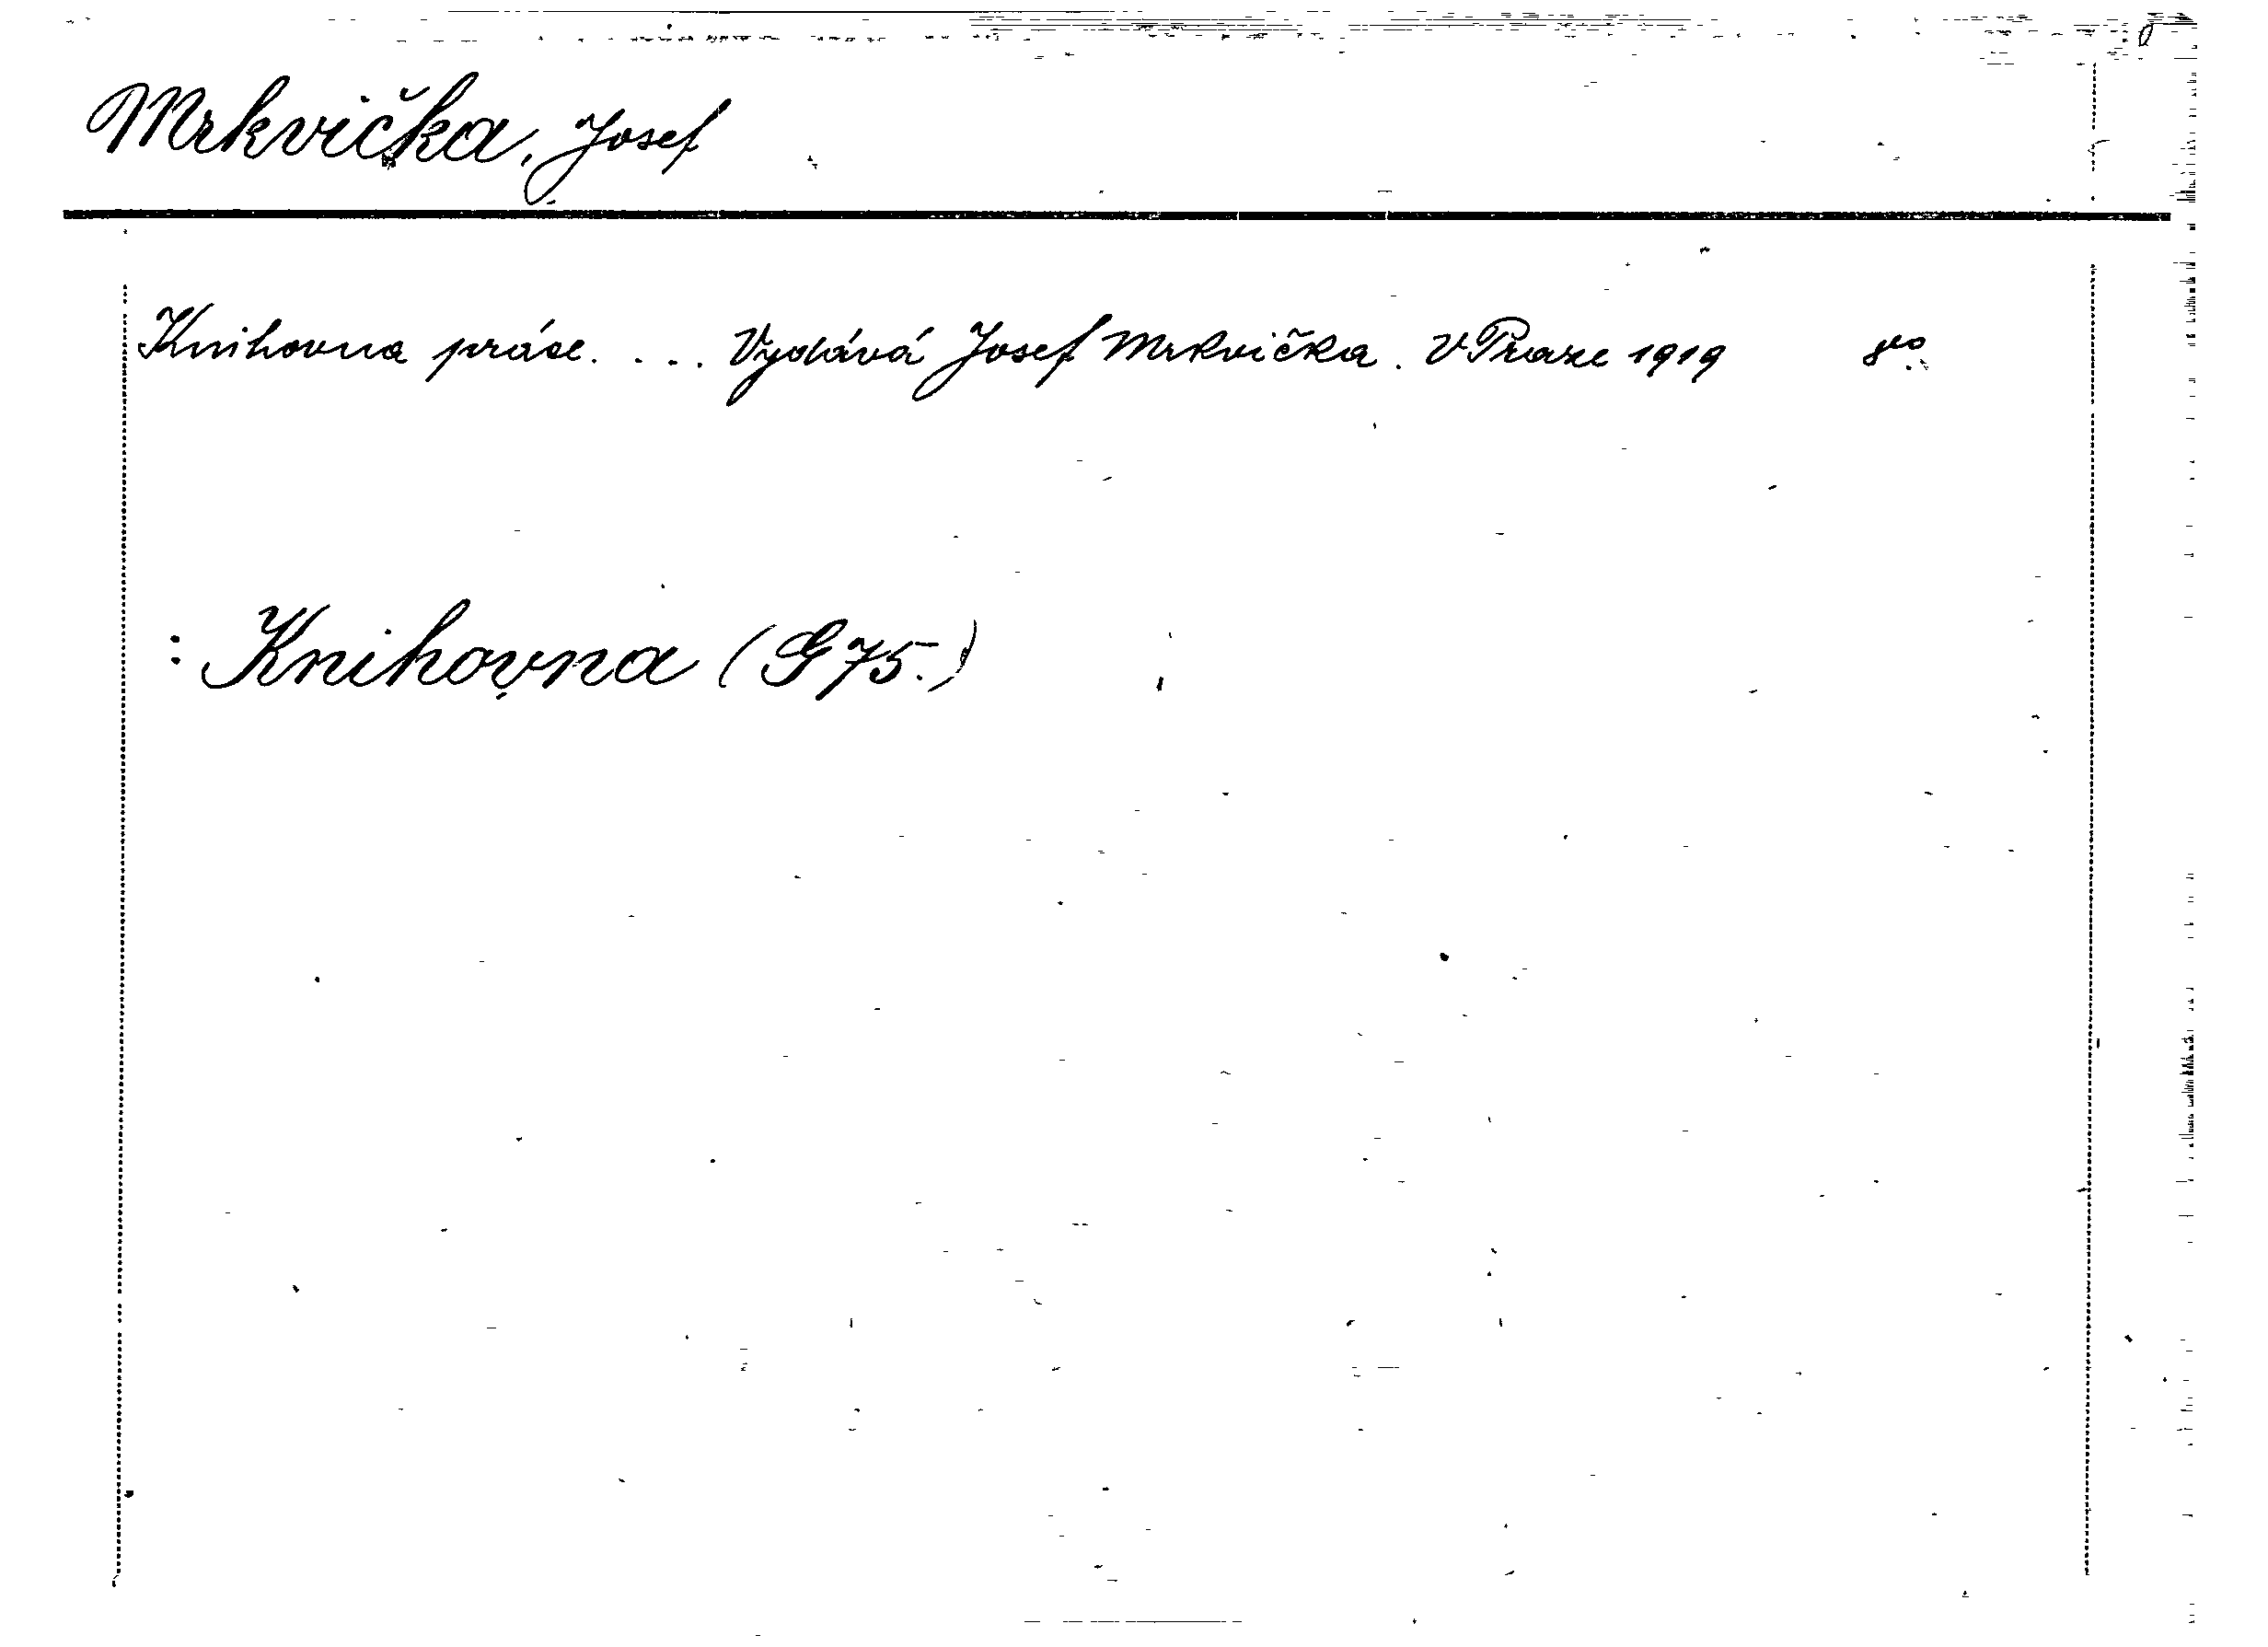 Mrkvička, Josef
Knihovna práce. ... Vydává Josef Mrkvička. V Praze 1919 8vo.
: Knihovna (G 75.)